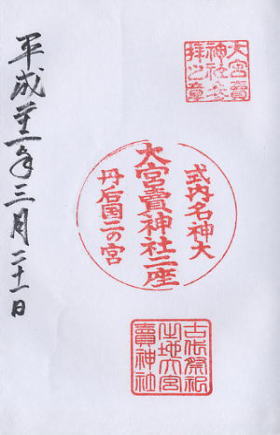 大宮賣
神社参
拝之章
式内名神大
大宮賣神社二座
丹后国二の宮
古代祭祀
之地大宮
賣神社
平成廿一年三月二十一日